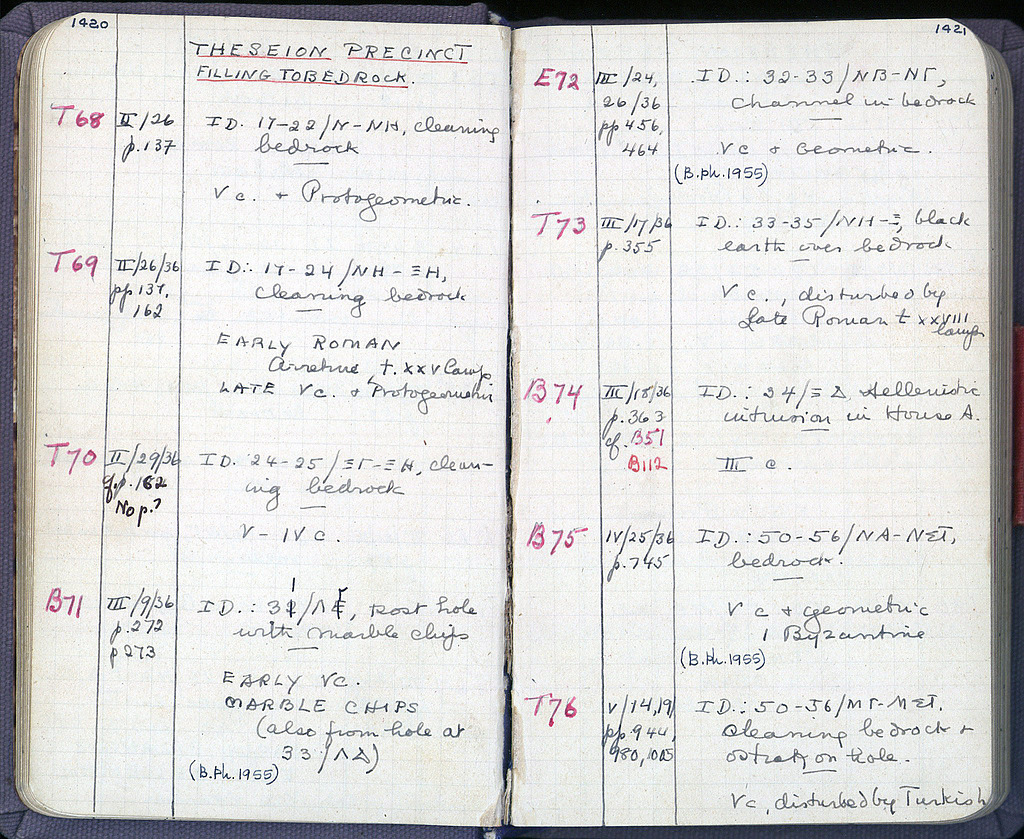 1420
THESEION PRECINCT
FILLING TO BEDROCK.
T68 II/26 ID. 17-22/Ν-ΝΗ, cleaning
p.137 bedrock
Vc. + Protogeometric.
T69 II/26/36 ID.: 17-24/ΝΗ-ΞΗ,
pp 137, cleaning bedrock
162
EARLY ROMAN
Arretine, t. XXV Lamp
LATE Vc. + Protogeometric
T70 II/29/36 ID. 24-25/ΞΓ-ΞΗ, clean-
cf. p. 162 ing bedrock
No p.?
V-IV c.
1
B71 III/9/36 ID.: 32/Λ, post hole
p.272 with marble chips
p 273
EARLY Vc.
MARBLE CHIPS
(also from hole at
33/ΛΔ)
(B.Ph.1955)
1421
E72 III/24, ID.: 32-33/ΝΒ-ΝΓ,
26/36 channel in bedrock
pp 456,
464 Vc + Geometric.
(B.Ph.1955)
T73 III/17/36 ID.: 33-35/ΝΗ-Ξ, black
p. 355 earth over bedrock
Vc., disturbed by
Late Roman t XXVIII
lamps
B74 III/18/36 ID.: 24/ΞΔ, Hellenistic
p. 363 intrusion in House A.
cf. B51
B112 III c.
B75 IV/25/36 ID.: 50-56/ΝΑ-ΝΣΤ,
p.745 bedrock.
Vc + geometric
1 Byzantine
(B.Ph.1955)
T76 V/14,19/ ID.: 50-56/ΜΓ-ΜΣΤ.
pp. 944, cleaning bedrock +
980, 1005 ostrakon hole.
Vc, disturbed by Turkish